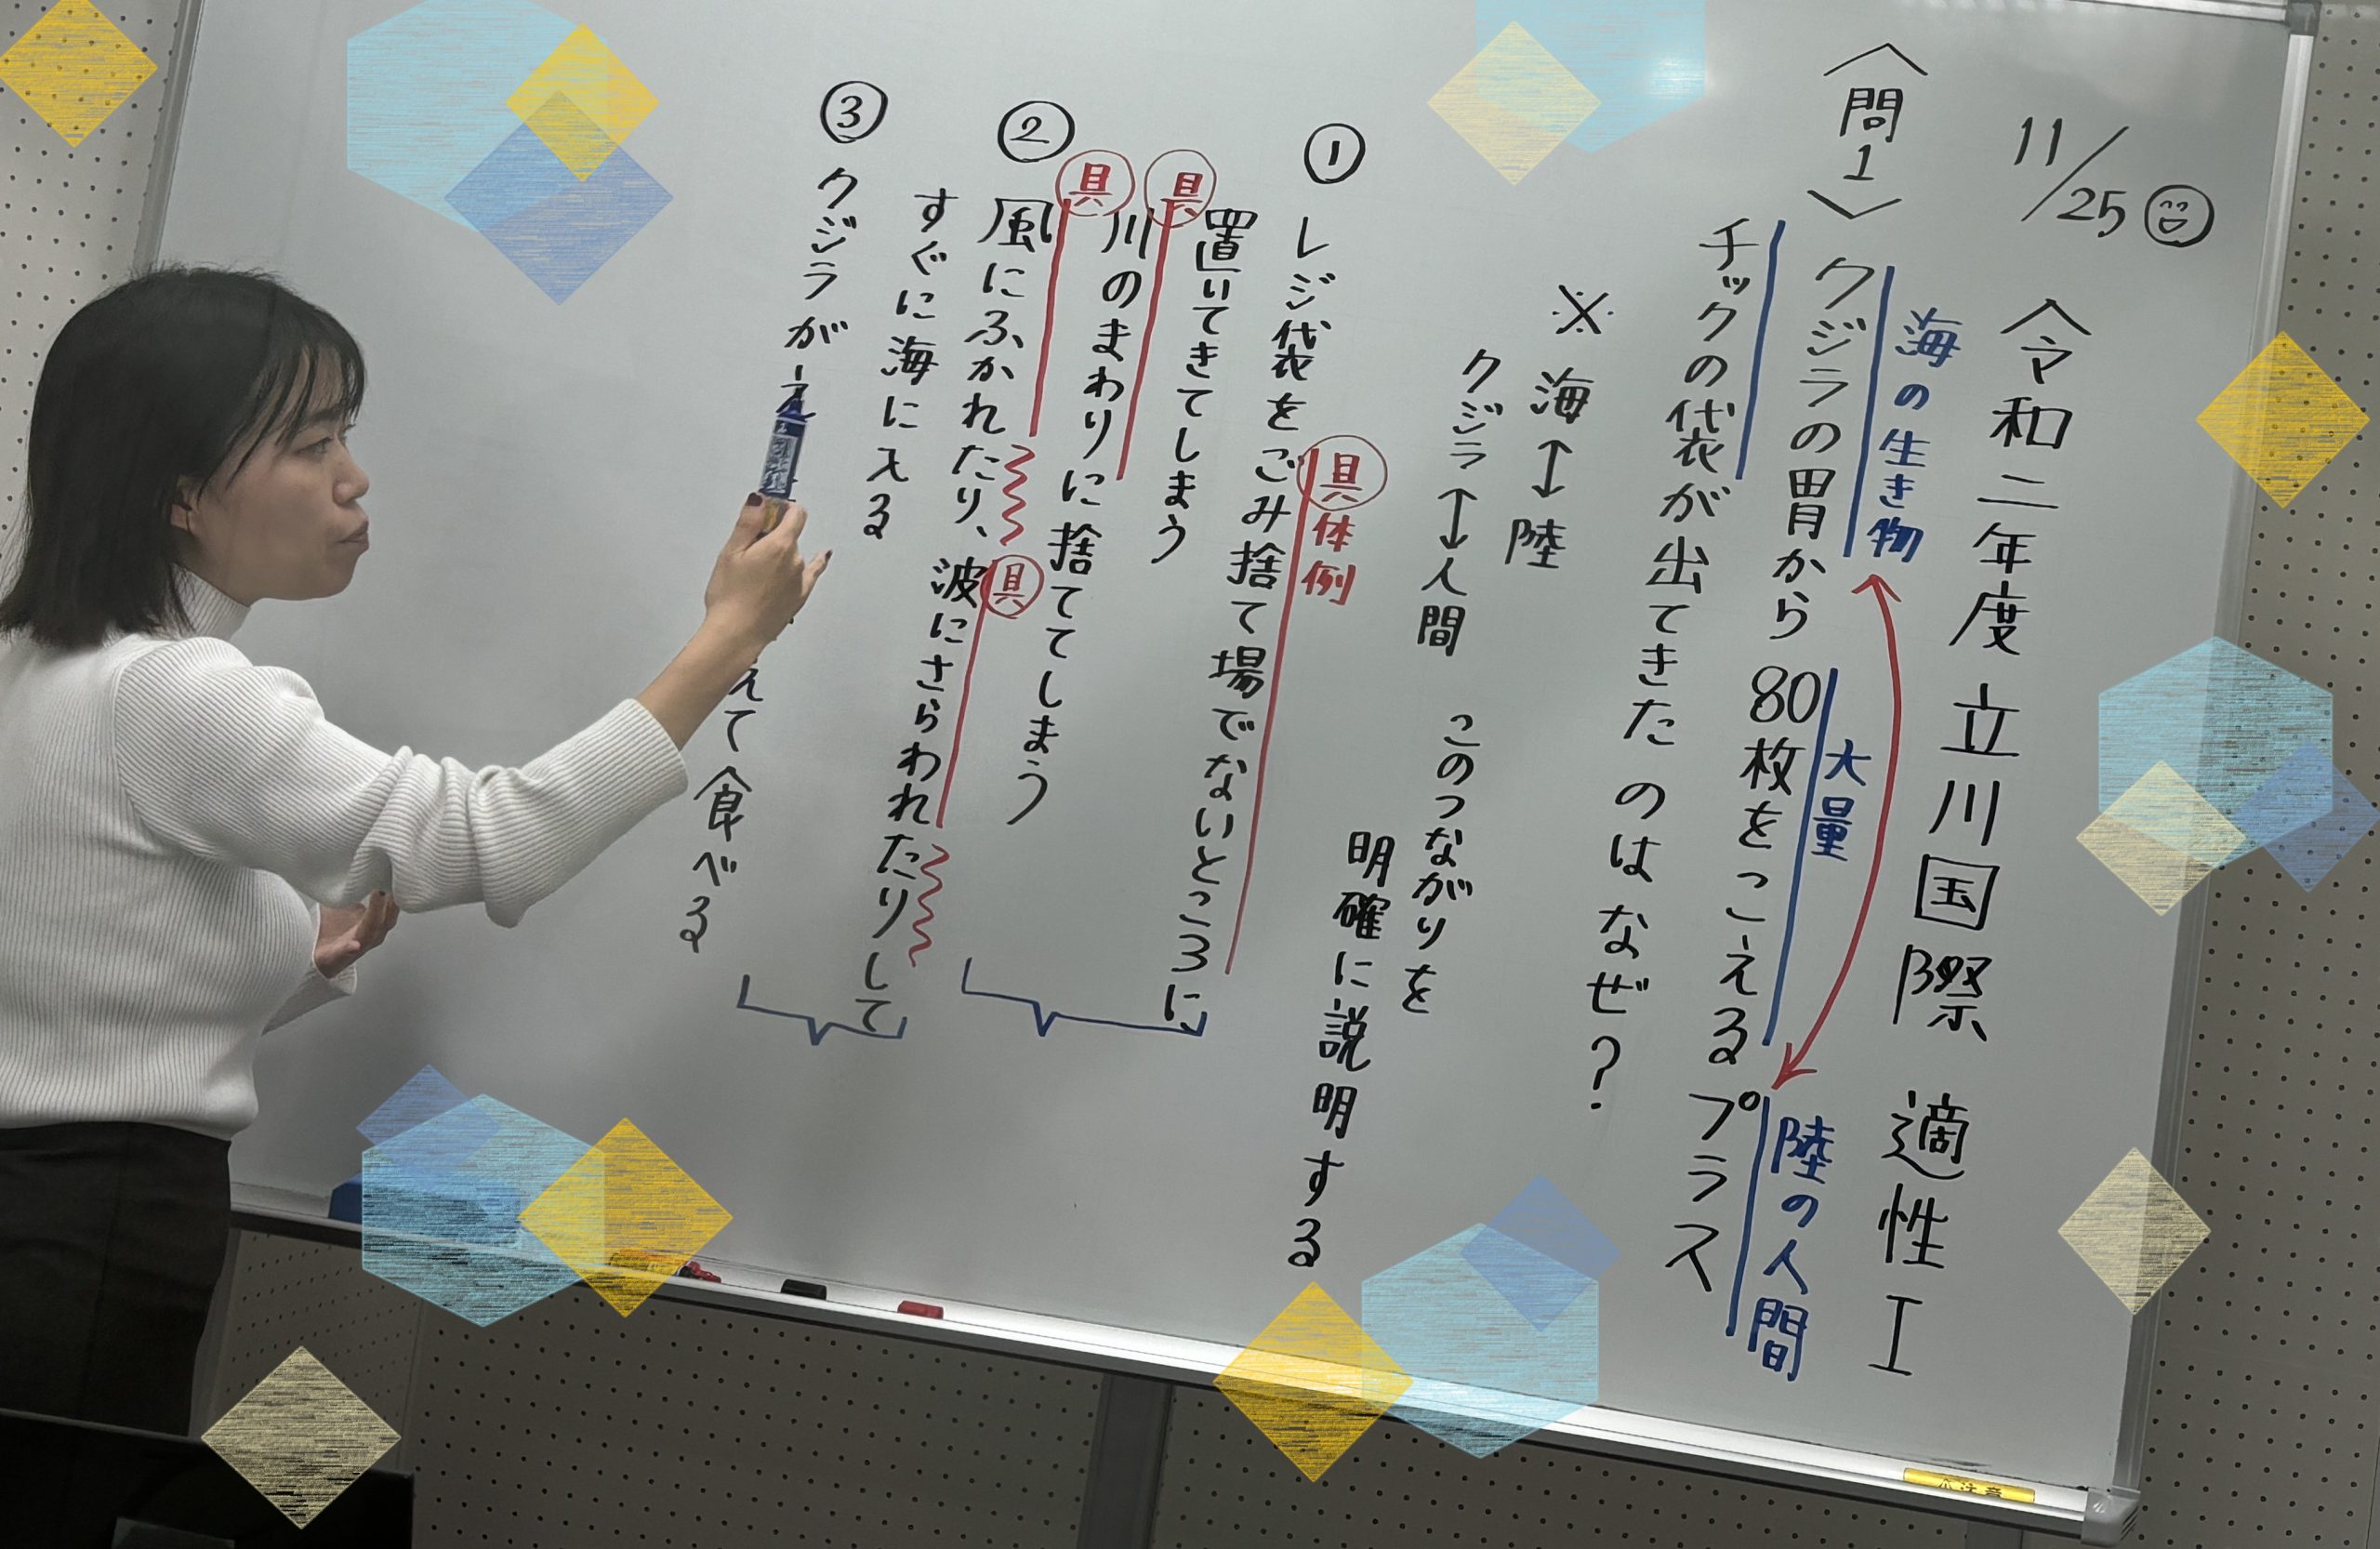 11/25
令和二年度 立川国際 適性Ⅰ
〈問1〉
海の生き物
大量
陸の人間
クジラの胃から80枚をこえるプラス
チックの袋が出てきたのはなぜ?
※ 海↔陸
クジラ↔人間 このつながりを
明確に説明する
具体例
① レジ袋をごみ捨て場でないところに
置いてきてしまう
具
川のまわりに捨ててしまう
具
具
② 風にふかれたり、波にさらわれたりして
すぐに海に入る
③ クジラが
えて食べる
注意